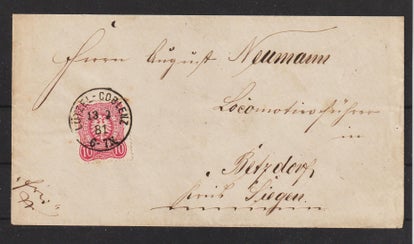 Herrn August Neumann
Locomotivführer
in
Betzdorf
Kreis Siegen.
LÜTZEL-COBLENZ
13 3
81
6-7N
10 10
"frei"